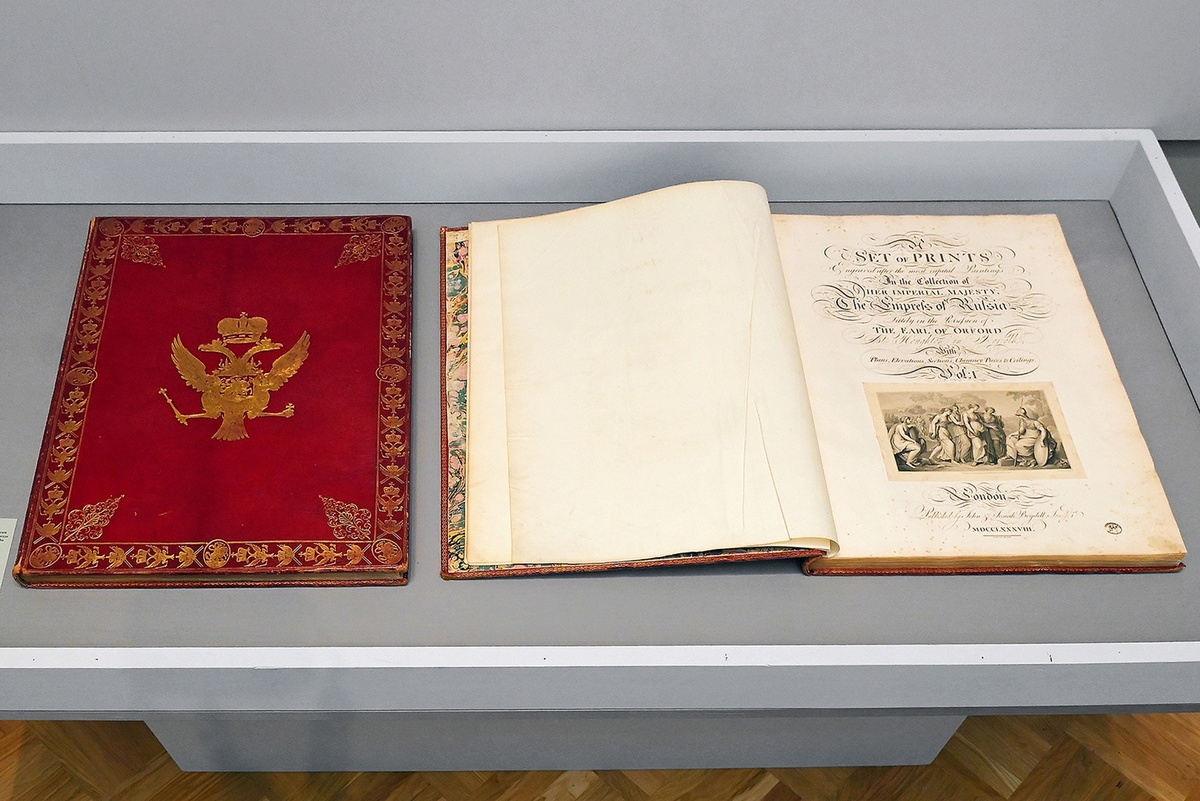 A
SET OF PRINTS
Engraved after the most capital Paintings
In the Collection of
HER IMPERIAL MAJESTY
The Empress of Russia
Lately in the Possession of
THE EARL OF ORFORD
At Houghton in Norfolk
With
Plans, Elevations, Sections, Chimney Pieces & Ceilings
Vol: I
London
Published by John & Josiah Boydell
MDCCLXXXVIII.